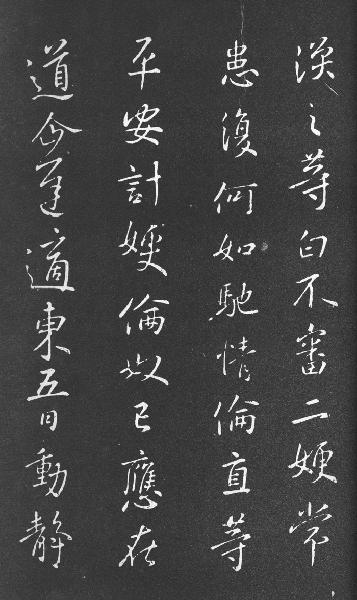 渙之等白不審二嫂常
患復何如馳情倫直等
平安計嫂倫奴已應在
道今達適東五日動靜